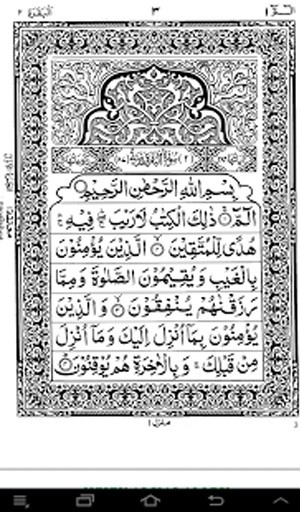 البقرة ٢
٣
الٓمٓ ١
بِسْمِ اللهِ الرَّحْمٰنِ الرَّحِيْمِ
الٓمّٓ ۚ ذٰلِكَ الْكِتٰبُ لَا رَيْبَ ۛ فِيْهِ ۛ
هُدًى لِّلْمُتَّقِيْنَ ۙ الَّذِيْنَ يُؤْمِنُوْنَ
بِالْغَيْبِ وَيُقِيْمُوْنَ الصَّلٰوةَ وَمِمَّا
رَزَقْنٰهُمْ يُنْفِقُوْنَ ۙ وَالَّذِيْنَ
يُؤْمِنُوْنَ بِمَاۤ اُنْزِلَ اِلَيْكَ وَمَاۤ اُنْزِلَ
مِنْ قَبْلِكَ ۚ وَبِالْاٰخِرَةِ هُمْ يُوْقِنُوْنَ
منزل ١